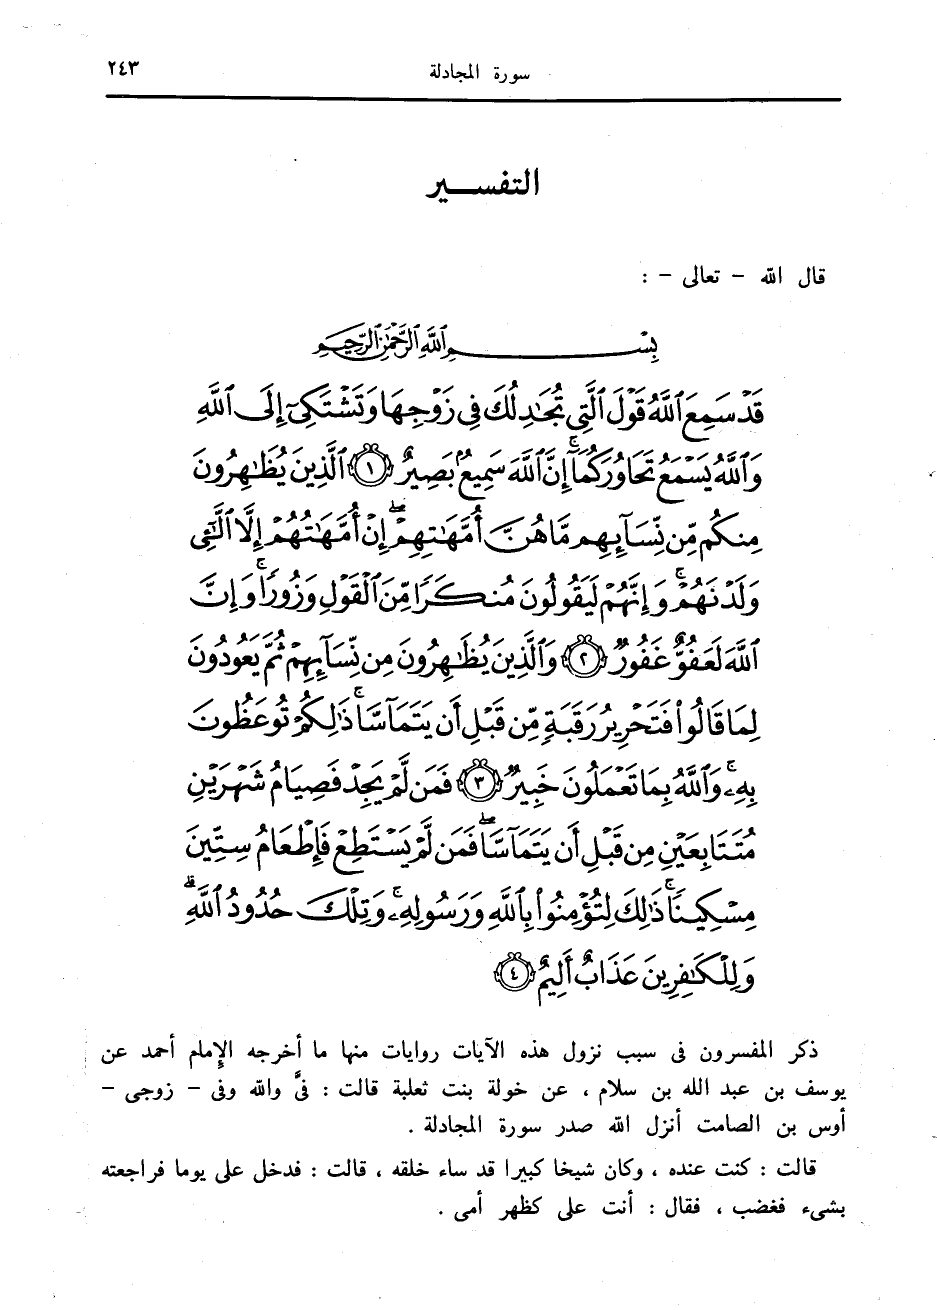 سورة المجادلة ٢٤٣
التفسـير
قال الله - تعالى - :
بِسْــــــمِ ٱللَّهِ ٱلرَّحْمَٰنِ ٱلرَّحِيمِ
قَدْ سَمِعَ ٱللَّهُ قَوْلَ ٱلَّتِى تُجَٰدِلُكَ فِى زَوْجِهَا وَتَشْتَكِىٓ إِلَى ٱللَّهِ
وَٱللَّهُ يَسْمَعُ تَحَاوُرَكُمَآ ۚ إِنَّ ٱللَّهَ سَمِيعٌۢ بَصِيرٌ ١ ٱلَّذِينَ يُظَٰهِرُونَ
مِنكُم مِّن نِّسَآئِهِم مَّا هُنَّ أُمَّهَٰتِهِمْ ۖ إِنْ أُمَّهَٰتُهُمْ إِلَّا ٱلَّٰٓـِٔى
وَلَدْنَهُمْ ۚ وَإِنَّهُمْ لَيَقُولُونَ مُنكَرًا مِّنَ ٱلْقَوْلِ وَزُورًا ۚ وَإِنَّ
ٱللَّهَ لَعَفُوٌّ غَفُورٌ ٢ وَٱلَّذِينَ يُظَٰهِرُونَ مِن نِّسَآئِهِمْ ثُمَّ يَعُودُونَ
لِمَا قَالُوا۟ فَتَحْرِيرُ رَقَبَةٍ مِّن قَبْلِ أَن يَتَمَآسَّا ۚ ذَٰلِكُمْ تُوعَظُونَ
بِهِۦ ۚ وَٱللَّهُ بِمَا تَعْمَلُونَ خَبِيرٌ ٣ فَمَن لَّمْ يَجِدْ فَصِيَامُ شَهْرَيْنِ
مُتَتَابِعَيْنِ مِن قَبْلِ أَن يَتَمَآسَّا ۖ فَمَن لَّمْ يَسْتَطِعْ فَإِطْعَامُ سِتِّينَ
مِسْكِينًا ۚ ذَٰلِكَ لِتُؤْمِنُوا۟ بِٱللَّهِ وَرَسُولِهِۦ ۚ وَتِلْكَ حُدُودُ ٱللَّهِ ۗ
وَلِلْكَٰفِرِينَ عَذَابٌ أَلِيمٌ ٤
ذكر المفسرون فى سبب نزول هذه الآيات روايات منها ما أخرجه الإمام أحمد عن
يوسف بن عبد الله بن سلام ، عن خولة بنت ثعلبة قالت : فىَّ والله وفى - زوجى -
أوس بن الصامت أنزل الله صدر سورة المجادلة .
قالت : كنت عنده ، وكان شيخا كبيرا قد ساء خلقه ، قالت : فدخل على يوما فراجعته
بشىء فغضب ، فقال : أنت على كظهر أمى .